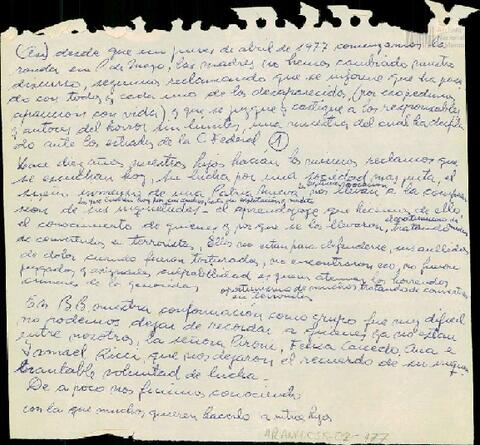 desde que un jueves de abril de 1977 comenzamos la
ronda en P. de Mayo, las madres no hemos cambiado nuestro
discurso, seguimos reclamando que se informe que ha pasa
do con todos y cada uno de los desaparecidos, (por eso pedimos
aparición con vida) y que se juzgue y castigue a los responsables
y autores del horror sin límites, una muestra del cual ha desfi
lado ante los estrados de la C. Federal (1)
Hace diez años nuestros hijos hacían los mismos reclamos que
se escuchan hoy, su lucha por una sociedad mas justa, el
sueño de una Patria Nueva, nos llevan a la
sion de sus el aprendizaje que hicimos de ello
el conocimiento de quienes y por que se los llevaron,
de convertirlos en terroristas. Ellos no están para defenderse, sus aullidos
de dolor cuando fueron torturados, no encontraron eco, no fueron
juzgados y culpabilidad es quien los horrendos
crímenes de la genocida, oportunismo de muchos tratando de convertirlos
en terroristas
En B.B. nuestra conformación como grupo fue muy difícil
no podemos dejar de recordar a quienes ya no están
entre nosotros, la señora Pirroni, Felisa Caicedo, Ana e
Ismael Ricci, que nos dejaron el recuerdo de su inque
brantable voluntad de lucha.
De a poco nos fuimos conociendo
con la que muchos quieren hacerlo a ntros hijos
Archivo
Nacional
de la
Memoria